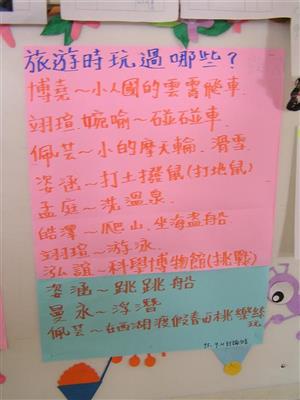 旅遊時玩過哪些？
博堯～小人國的雲霄飛車
翊瑄.婉喻～碰碰車
佩芸～小的摩天輪.滑雪
姿涵～打土撥鼠(打地鼠)
孟庭～洗溫泉
皓澤～爬山.坐海盜船
翊瑄～游泳
泓誼～科學博物館(挑戰)
姿涵～跳跳船
曼永～浮潛
佩芸～西湖渡假村